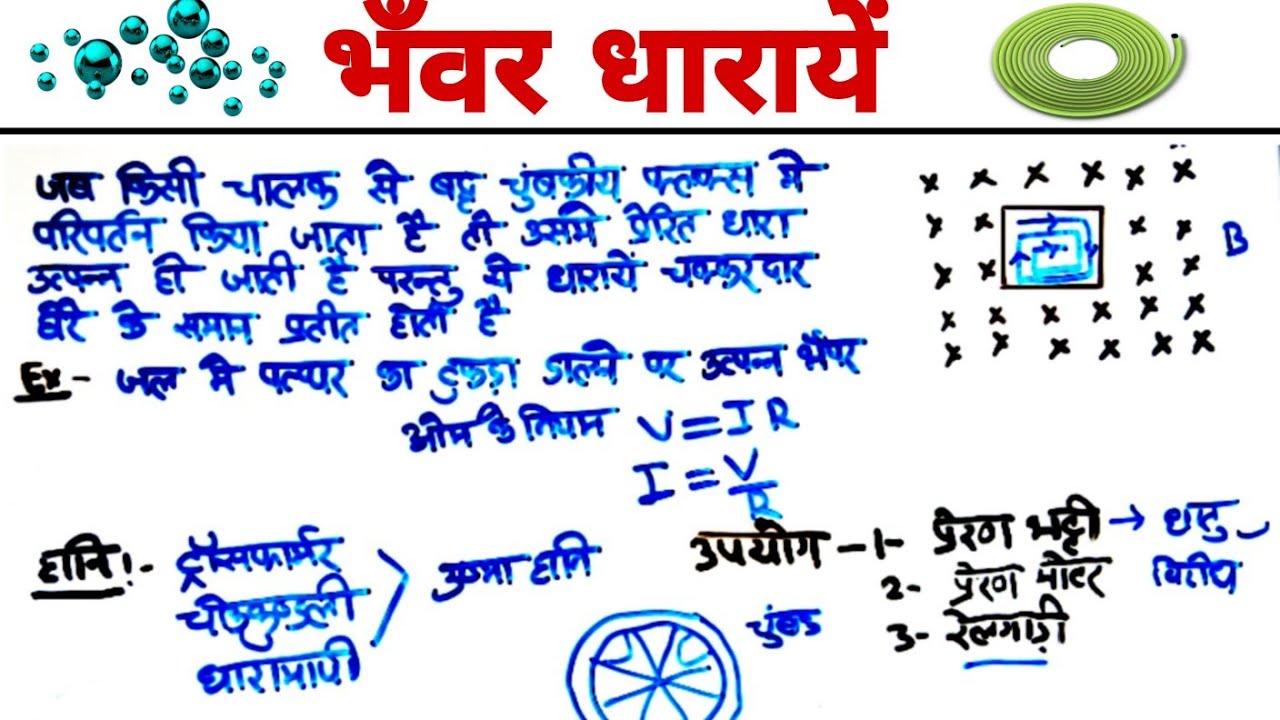 भँवर धारायें
जब किसी चालक से बद्ध चुंबकीय फ्लक्स मे
परिवर्तन किया जाता है तो उसमे प्रेरित धारा
उत्पन्न हो जाती है परन्तु ये धारायें चक्करदार
घेरे के समान प्रतीत होती है
Ex- जल मे पत्थर का टुकड़ा डालने पर उत्पन्न भँवर
ओम के नियम V=IR
I = V/R
B
हानि:- ट्राँसफार्मर
चोककुण्डली
धारामापी
उष्मा हानि
उपयोग - 1- प्रेरण भट्टी → धातु
2- प्रेरण मोटर
3- रेलगाड़ी
चुंबक